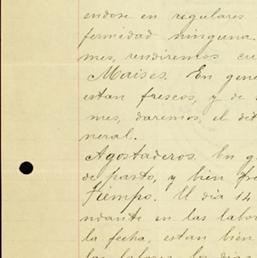 endose en regulares
fermidad ninguna.
mes, rendiremos cu
Maises. En gene
estan frescos, y de
mes, daremos, el dit
neral.
Agostaderos. En g
de pasto, y bien fre
Tiempo. El dia 14
ndante en las labo
la fecha, estan bien
las labores los dias